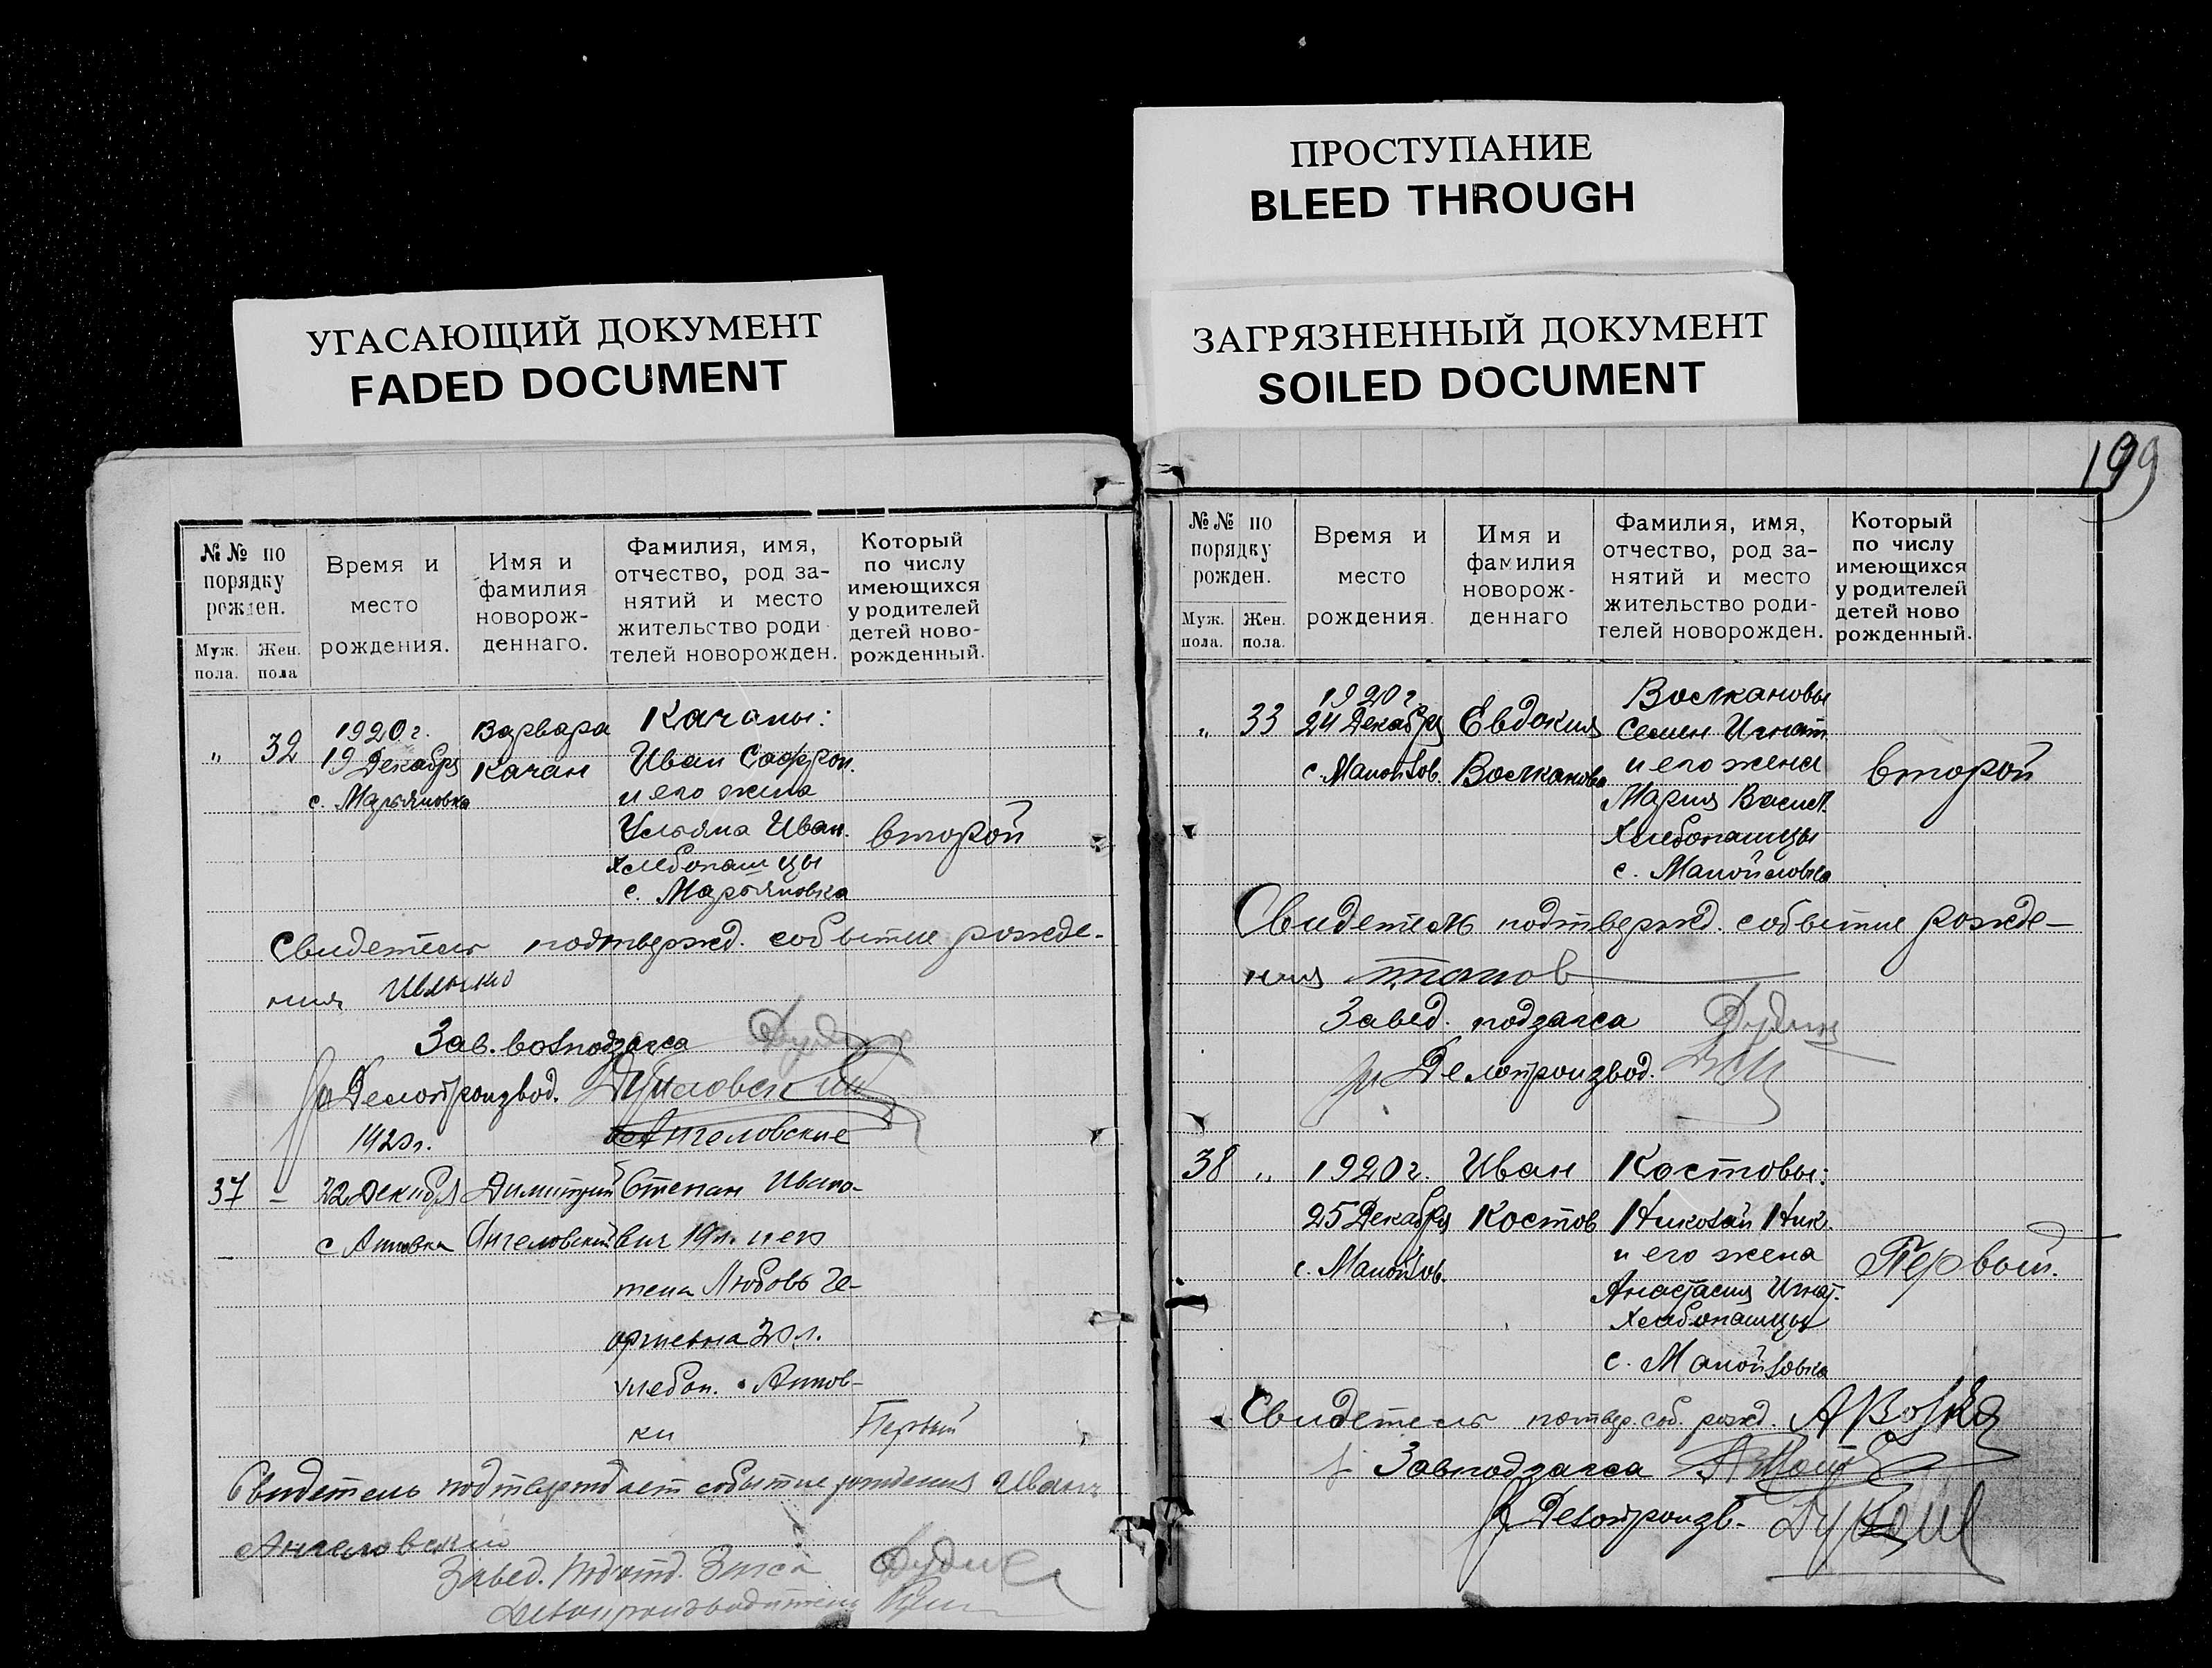 ПРОСТУПАНИЕ
BLEED THROUGH
УГАСАЮЩИЙ ДОКУМЕНТ
FADED DOCUMENT
ЗАГРЯЗНЕННЫЙ ДОКУМЕНТ
SOILED DOCUMENT
№№ по
порядку
рожден.
Муж.
пола.
Жен.
пола
Время и
место
рождения.
Имя и
фамилия
новорож-
деннаго.
Фамилия, имя,
отчество, род за-
нятий и место
жительство роди-
телей новорожден.
Который
по числу
имеющихся
у родителей
детей ново-
рожденный.
„ 32
1920 г.
19 Декабря
с. Марьяновка
Варвара
Качан
Качаны:
Иван Софрон.
и его жена
Ульяна Иван.
хлебопашцы
с. Марьяновка
второй
Свидетель подтвержд. событие рожде-
ния
Зав. волподзагса
Делопроизвод.
1920 г.
Ангеловские
37 –
22 Декабря
с Анновка
Димитрий
Ангеловский
Степан Ивано-
вич 19 л. и его
жена Любовь Ге-
оргиевна 20 л.
хлебоп. Аннов-
ки
Первый
Свидетель подтверждает событие рождения Иван
Ангеловский
Завед. Подотд. Загса
Делопроизводитель
199
№№ по
порядку
рожден.
Муж.
пола.
Жен.
пола.
Время и
место
рождения.
Имя и
фамилия
новорож-
деннаго
Фамилия, имя,
отчество, род за-
нятий и место
жительство роди-
телей новорожден.
Который
по числу
имеющихся
у родителей
детей ново
рожденный.
„ 33
1920 г.
24 Декабря
с. Манойлов.
Евдокия
Волканова
Волкановы
Семен Игнат.
и его жена
Мария Васил.
Хлебопашцы
с. Манойловка
второй
Свидетель подтвержд. событие рожде-
ния
Завед. подзагса
Делопроизвод.
38 „
1920 г.
25 Декабря
с. Манойлов.
Иван
Костов
Костовы:
Николай Ник.
и его жена
Анастасия Игнат.
Хлебопашцы
с. Манойловка
Первый.
Свидетель потвер. соб. рожд.
Завподзагса
Делопроизв.